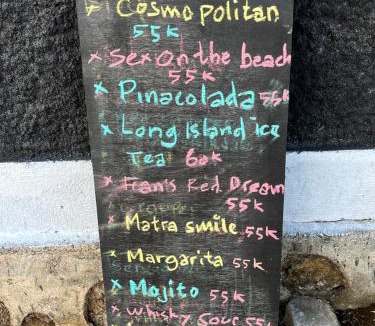 x Cosmopolitan
55k
x Sex On the beach
55k
x Pinacolada 55k
x Long Island ice
Tea 60k
x Fran's Red Dream
55k
x Matra smile 55k
x Margarita 55k
x Mojito 55k
x Whisky Sour 55k